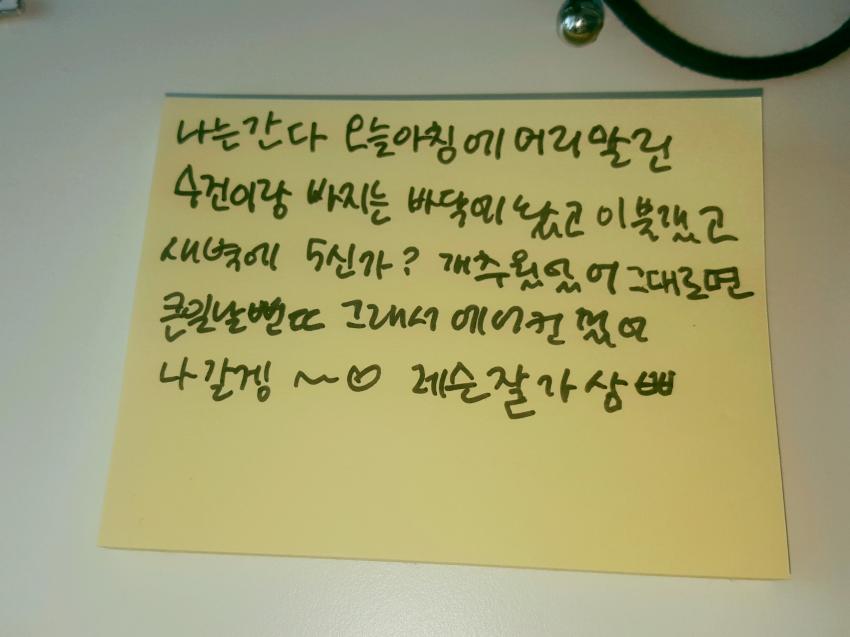 나는간다 오늘아침에 머리말린
수건이랑 바지는 바닥에놨고 이불갰고
새벽에 5신가? 개추웠었어 그대로면
큰일날뻔 ㄸ 그래서 에어컨껐어
나갈겡 ~♡ 레슨잘가 상ㅃㅃ